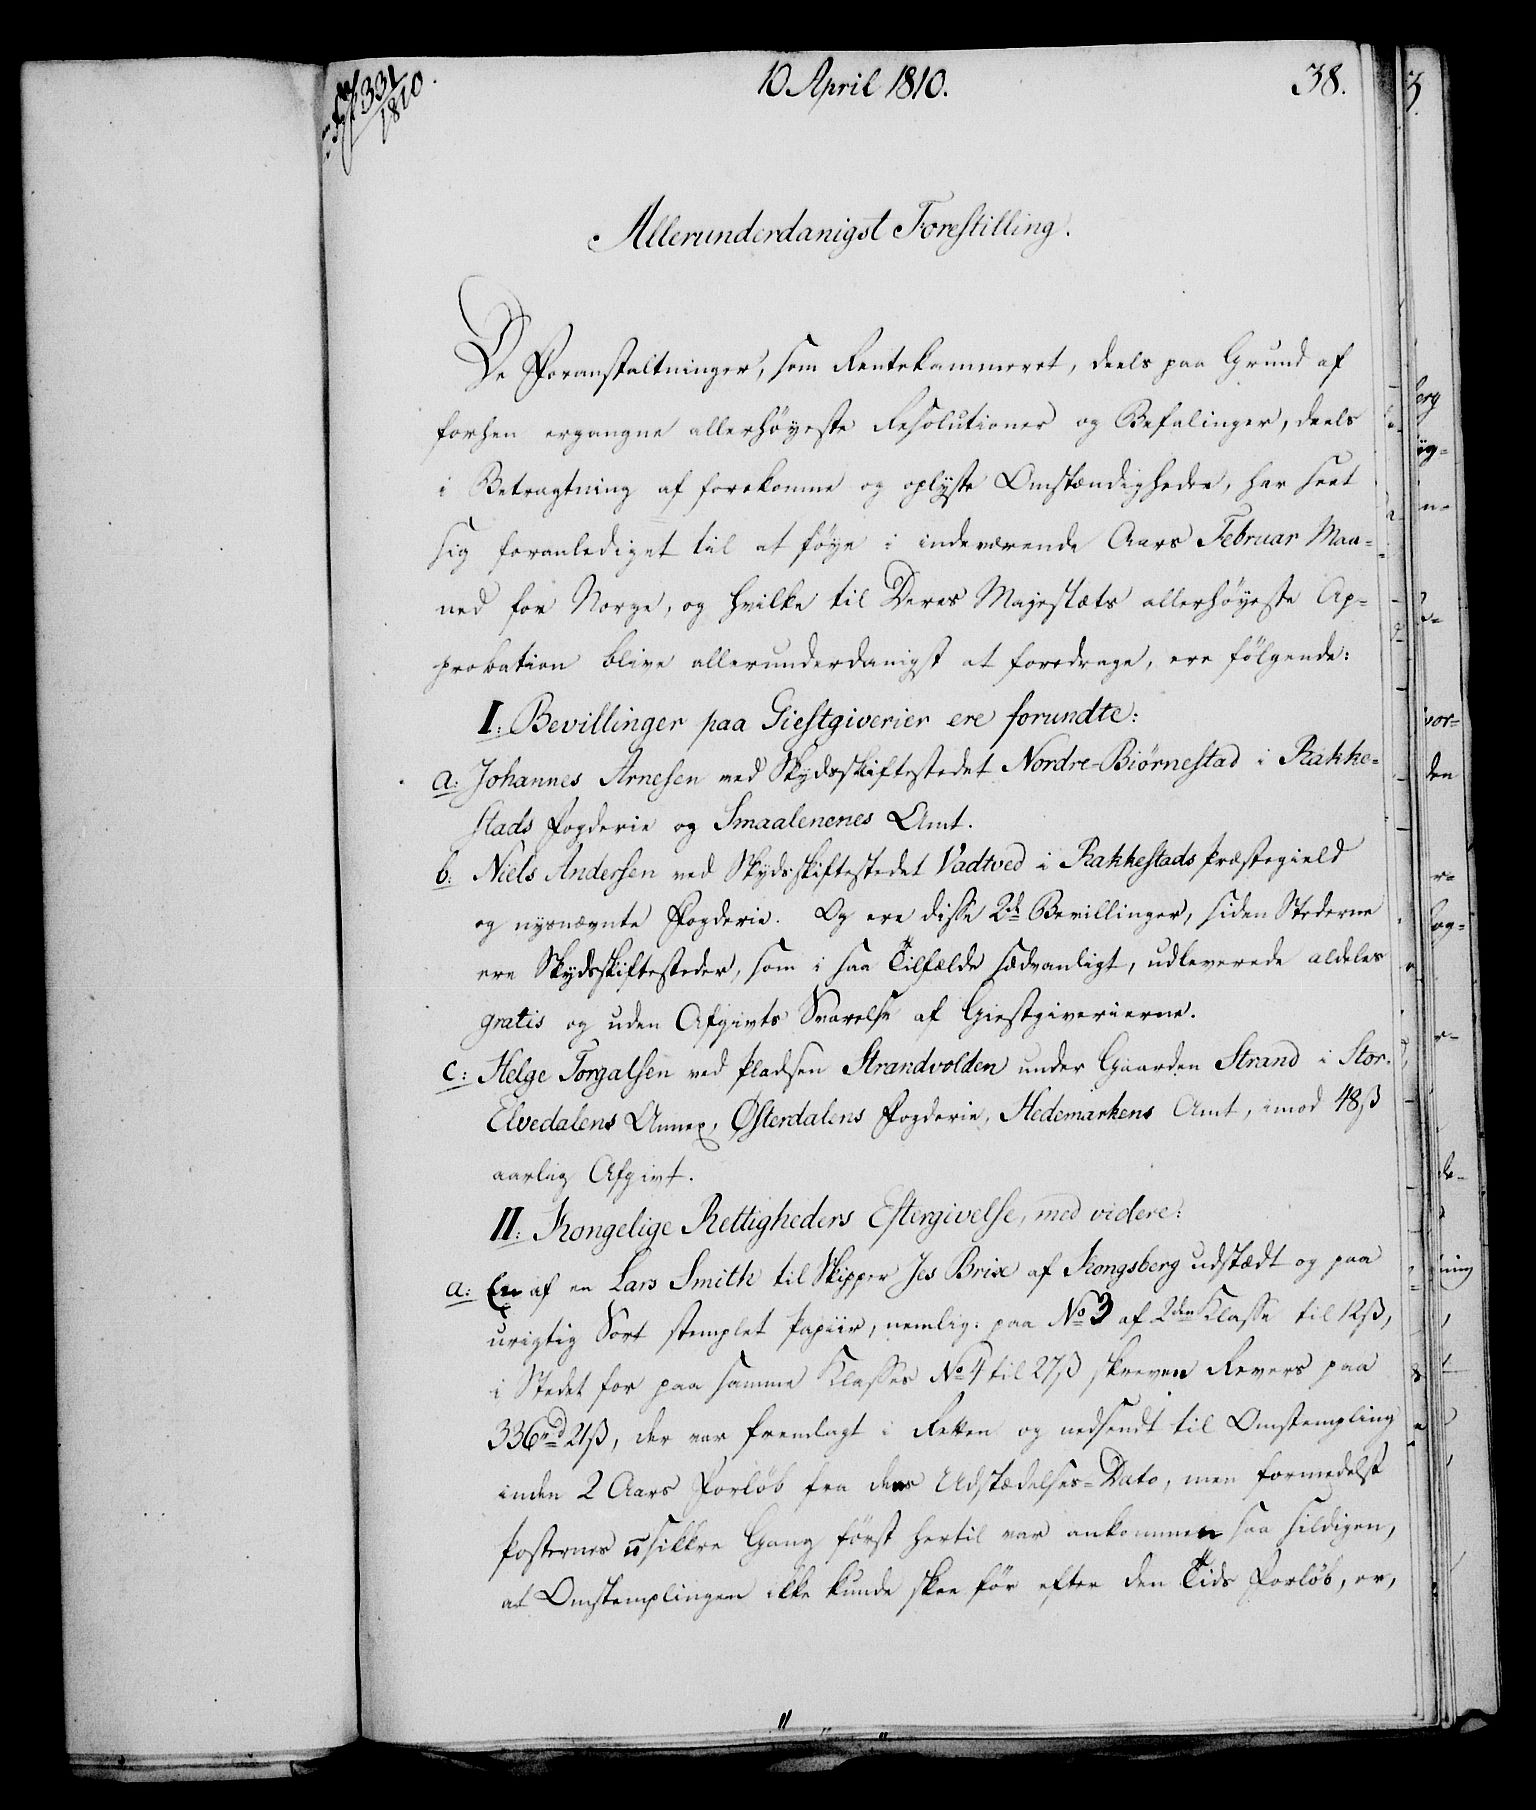 331
1810.
10 April 1810.
38.
Allerunderdanigst Forestilling.
De Foranstaltninger, som Rentekammeret, deels paa Grund af
forhen ergangne allerhöyeste Resolutioner og Befalinger, deels
i Betragtning af forekomne og oplyste Omstændigheder, har seet
sig foranlediget til at föye i indeværende Aars Februar Maa-
ned for Norge, og hvilke til Deres Majestæts allerhöyeste Ap-
probation blive allerunderdanigst at foredrage, ere fölgende:
I: Bevillinger paa Giestgiverier ere forundte:
a: Johannes Arnesen ved Skydsskiftestedet Nordre-Biörnestad i Rakke-
stads Fogderie og Smaalenenes Amt.
b: Niels Andersen ved Skydsskiftestedet Vadtved i Rakkestads Præstegield
og nysnævnte Fogderie. Og ere disse 2de Bevillinger, siden Stederne
ere Skydsskiftesteder, som i saa Tilfælde sædvanligt, udleverede aldeles
gratis og uden Afgivts Svarelse af Giestgiverierne.
c: Helge Torgalsen ved Pladsen Strandvolden under Gaarden Strand i Stor-
Elvedalens Annex, Østerdalens Fogderie, Hedemarkens Amt, imod 48ß
aarlig Afgivt.
II: Kongelige Rettigheders Eftergivelse, med videre:
a: En af en Lars Smith til Skipper Jes Brix af Kongsberg udstædt og paa
urigtig Sort stemplet Papiir, nemlig: paa No 3 af 2den Klasse til 12ß,
i Stedet for paa samme Klasses No 4 til 27ß skreven Revers paa
336rd 21ß, der var fremlagt i Retten og nedsendt til Omstempling
inden 2 Aars Forlöb fra dens Udstædelses-Dato, men formedelst
Posternes usikkre Gang först hertil var ankommen saa sildigen,
at Omstemplingen ikke kunde skee för efter den Tids Forlöb, er,